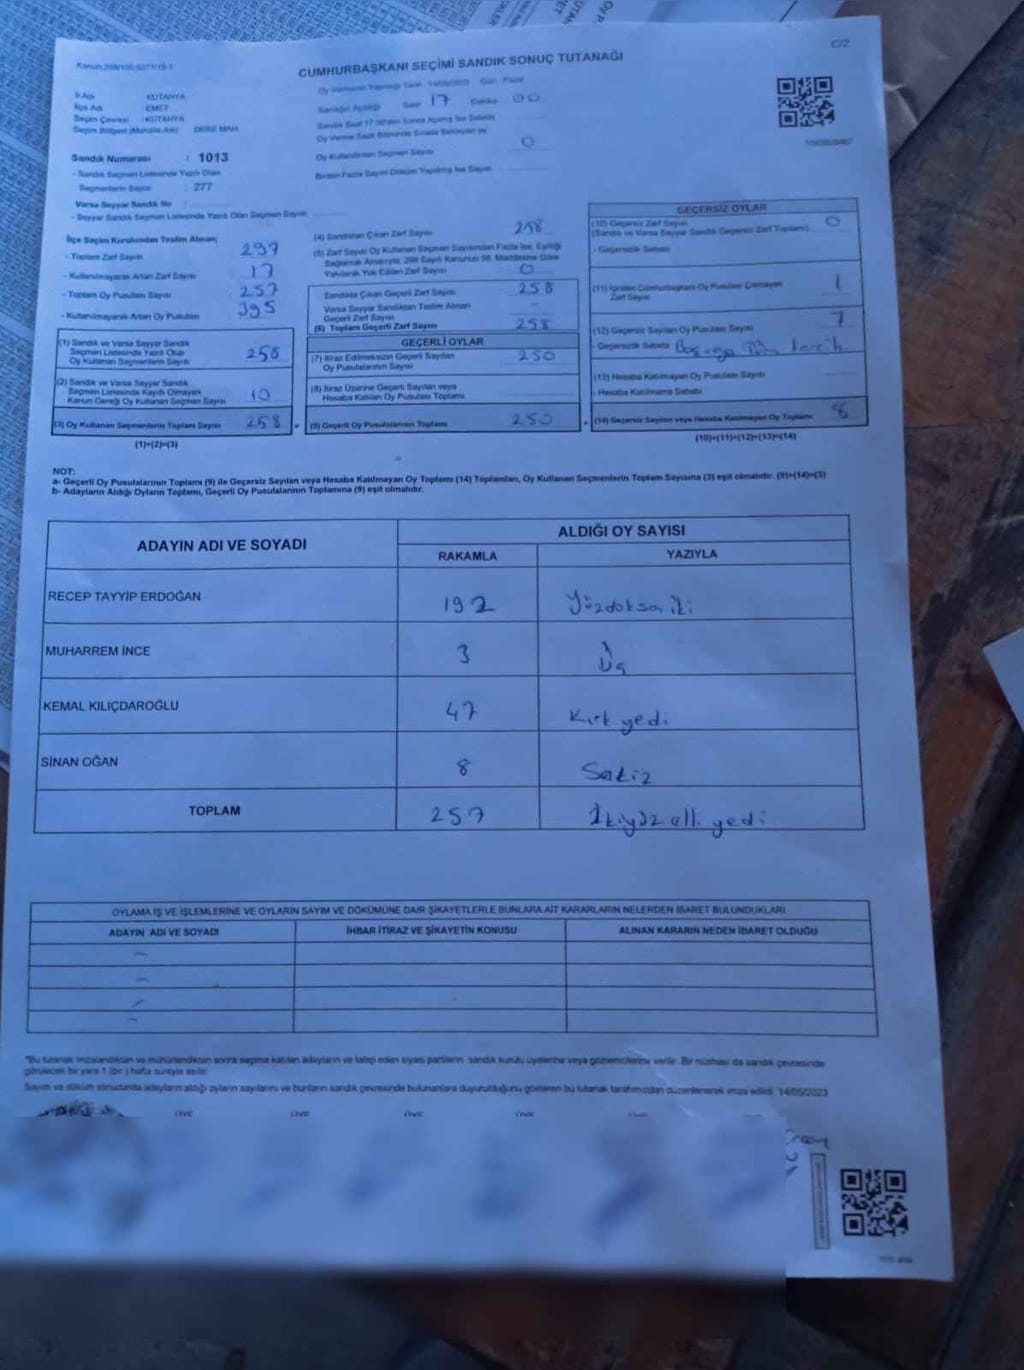 C/2
CUMHURBAŞKANI SEÇİMİ SANDIK SONUÇ TUTANAĞI
Oy Vermenin Yapıldığı Tarih 14/05/2023 Gün Pazar
İl Adı KÜTAHYA
İlçe Adı EMET
Seçim Çevresi : KÜTAHYA
Seçim Bölgesi (Mahalle /köy) DERE MAH.
Sandığın Açıldığı Saat 17 Dakika 00
Sandık Numarası : 1013
- Sandık Seçmen Listesinde Yazılı Olan
Seçmenlerin Sayısı : 277
Varsa Seyyar Sandık No :
- Seyyar Sandık Seçmen Listesinde Yazılı Olan Seçmen Sayısı
Sandık Saat 17.00'den Sonra Açılmış İse Sandık
Oy Verme Saati Bitiminde Sırada Bekleyen ve
Oy Kullandırılan Seçmen Sayısı 0
Birden Fazla Sayım Döküm Yapılmış İse Sayısı
İlçe Seçim Kurulundan Teslim Alınan;
- Toplam Zarf Sayısı 297
- Kullanılmayarak Artan Zarf Sayısı 17
- Toplam Oy Pusulası Sayısı 257
- Kullanılmayarak Artan Oy Pusulası 395
(1) Sandık ve Varsa Seyyar Sandık
Seçmen Listesinde Yazılı Olup
Oy Kullanan Seçmenlerin Sayısı 258
(2) Sandık ve Varsa Seyyar Sandık
Seçmen Listesinde Kayıtlı Olmayan
Kanun Gereği Oy Kullanan Seçmen Sayısı 10
(3) Oy Kullanan Seçmenlerin Toplam Sayısı 258
(1)+(2)=(3)
(4) Sandıktan Çıkan Zarf Sayısı 258
(5) Zarf Sayısı Oy Kullanan Seçmen Sayısından Fazla İse, Eşitliği
Sağlamak Amacıyla, 298 Sayılı Kanunun 98. Maddesine Göre
Yakılarak Yok Edilen Zarf Sayısı 0
Sandıkta Çıkan Geçerli Zarf Sayısı 258
Varsa Seyyar Sandıktan Teslim Alınan
Geçerli Zarf Sayısı
(6) Toplam Geçerli Zarf Sayısı 258
GEÇERLİ OYLAR
(7) İtiraz Edilmeksizin Geçerli Sayılan
Oy Pusulalarının Sayısı 250
(8) İtiraz Üzerine Geçerli Sayılan veya
Hesaba Katılan Oy Pusulası Toplamı
(9) Geçerli Oy Pusulalarının Toplamı 250
GEÇERSİZ OYLAR
(10) Geçersiz Zarf Sayısı 0
(Sandık ve Varsa Seyyar Sandık Geçersiz Zarf Toplamı)
- Geçersizlik Sebebi
(11) İçinden Cumhurbaşkanı Oy Pusulası Çıkmayan
Zarf Sayısı 1
(12) Geçersiz Sayılan Oy Pusulası Sayısı 7
- Geçersizlik Sebebi Boş veya tercih
(13) Hesaba Katılmayan Oy Pusulası Sayısı
- Hesaba Katılmama Sebebi
(14) Geçersiz Sayılan veya Hesaba Katılmayan Oy Toplamı 8
(10)+(11)+(12)+(13)=(14)
NOT:
a- Geçerli Oy Pusulalarının Toplamı (9) ile Geçersiz Sayılan veya Hesaba Katılmayan Oy Toplamı (14) Toplamları, Oy Kullanan Seçmenlerin Toplam Sayısına (3) eşit olmalıdır. (9)+(14)=(3)
b- Adayların Aldığı Oyların Toplamı, Geçerli Oy Pusulalarının Toplamına (9) eşit olmalıdır.
ADAYIN ADI VE SOYADI ALDIĞI OY SAYISI
RAKAMLA YAZIYLA
RECEP TAYYİP ERDOĞAN 192 Yüzdoksan iki
MUHARREM İNCE 3 Üç
KEMAL KILIÇDAROĞLU 47 Kırk yedi
SİNAN OĞAN 8 Sekiz
TOPLAM 257 İkiyüz elli yedi
OYLAMA İŞ VE İŞLEMLERİNE VE OYLARIN SAYIM VE DÖKÜMÜNE DAİR ŞİKAYETLERLE BUNLARA AİT KARARLARIN NELERDEN İBARET BULUNDUKLARI
ADAYIN ADI VE SOYADI İHBAR İTİRAZ VE ŞİKAYETİN KONUSU ALINAN KARARIN NEDEN İBARET OLDUĞU
*Bu tutanak imzalandıktan ve mühürlendikten sonra seçime katılan adayların ve talep eden siyasi partilerin sandık kurulu üyelerine veya gözlemcilerine verilir. Bir nüshası da sandık çevresinde
görülecek bir yere 1 (bir) hafta süreyle asılır.
Sayım ve döküm sonucunda adayların aldığı oyların sayılarını ve bunların sandık çevresinde bulunanlara duyurulduğunu gösteren bu tutanak tarafımızdan düzenlenerek imza edildi. 14/05/2023
ÜYE ÜYE ÜYE ÜYE